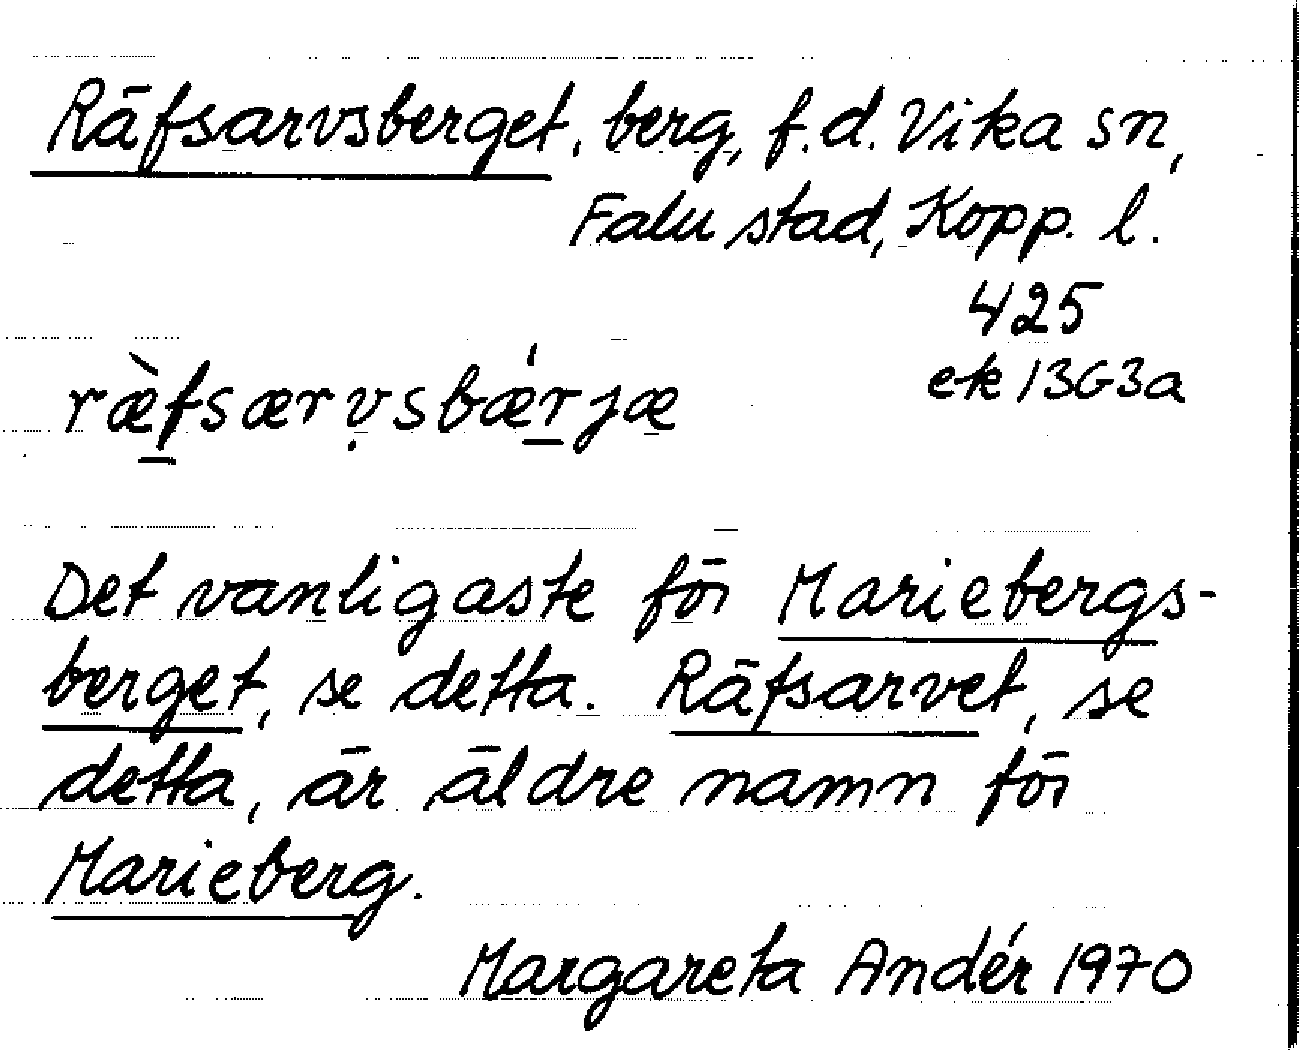 Räfsarvsberget, berg, f.d. Vika sn,
Falu stad, Kopp. l.
425
ek 13G3a
ræ̀fsærvsbǽrjæ
Det vanligaste för Mariebergs-
berget, se detta. Räfsarvet, se
detta, är äldre namn för
Marieberg.
Margareta Andér 1970